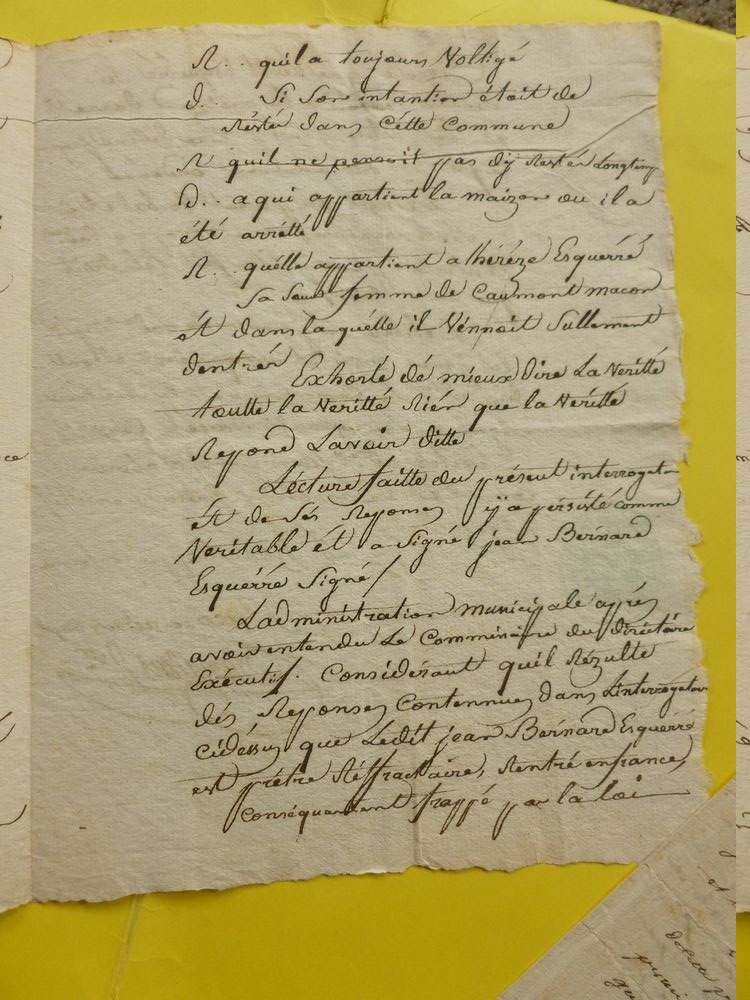 R.. quil a toujours Voltigé
d.. Si Son intantion étoit de
Réster dans Cétte Commune
R quil ne pensoit pas dÿ Réstér Longtemp
D.. a qui appartient la maizon ou il a
été arrétté
R.. quélle appartient a thérèze Esquérré
Sa Sœur femme de Caumont macon
ét dans la quélle il Vénnoit Sullement
dentrér
Exhorté dé mieux Dire La Veritté
toutte la Veritté Rién que la Veritté
Repond Lavoir ditte
Lécture faitte du présent interrogatoi
ét de Sés Reponses ÿ a pérsisté comme
Veritable ét a Signé jean Bérnard
Esquérré Signé/
Ladministration municipale aprés
avoir entendu Le Commissaire du directoire
Exécutif. Considérant quil Rézulte
dés Reponses Contennues dans Linterrogatoi
cidéssus que Ledit jean Bérnard Esquérré
est prétre Réffractaire, Rentré enfrance,
Conséquament frappé par la loi
ét